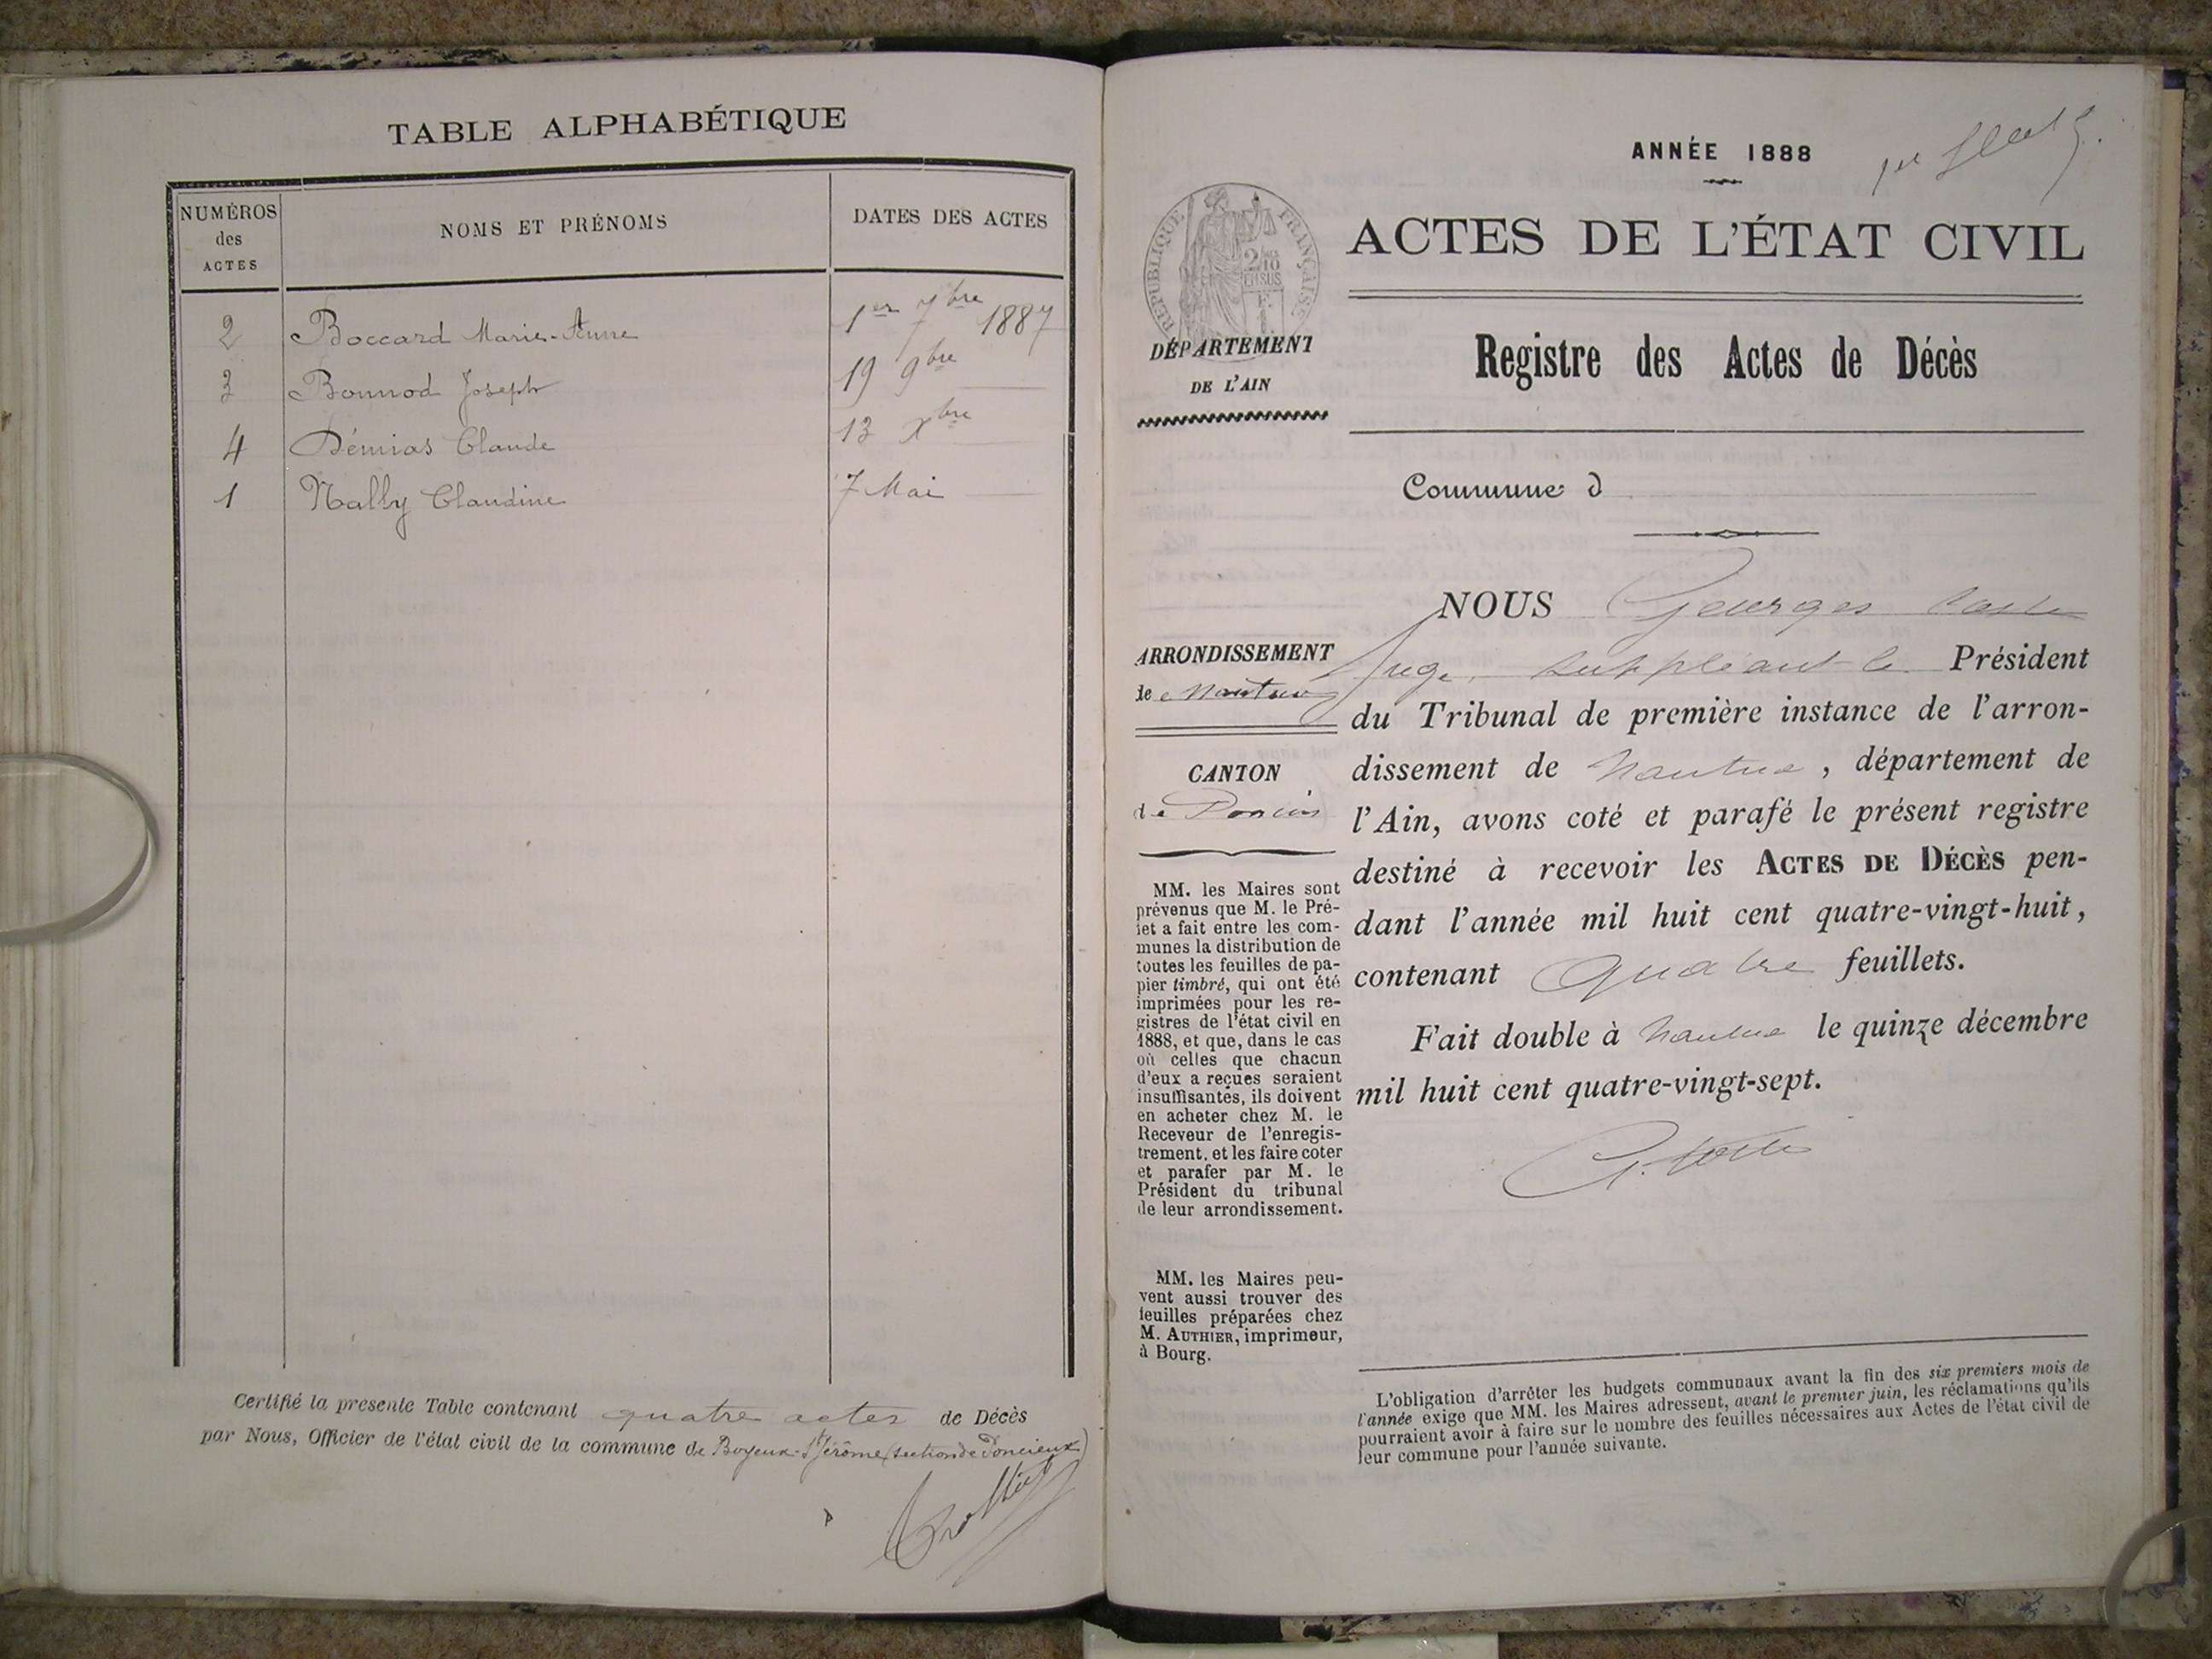 TABLE ALPHABÉTIQUE
NUMÉROS des ACTES
NOMS ET PRÉNOMS
DATES DES ACTES
2 Boccard Marie-Anne 1er 7bre 1887
3 Bonnod Joseph 19 9bre
4 Démias Claude 13 Xbre
1 Nally Claudine 7 Mai
Certifié la presente Table contenant quatre actes de Décès
par Nous, Officier de l'état civil de la commune de Boyeux-St Jérôme (section de Poncieux)
ANNÉE 1888
1er
RÉPUBLIQUE FRANÇAISE
2/10
EN SUS
ACTES DE L'ÉTAT CIVIL
DÉPARTEMENT
DE L'AIN
Registre des Actes de Décès
Commune d
NOUS Georges
ARRONDISSEMENT
de Nantua
Juge suppléant le Président
du Tribunal de première instance de l'arron-
dissement de Nantua, département de
l'Ain, avons coté et parafé le présent registre
destiné à recevoir les ACTES DE DÉCÈS pen-
dant l'année mil huit cent quatre-vingt-huit,
contenant Quatre feuillets.
Fait double à Nantua le quinze décembre
mil huit cent quatre-vingt-sept.
CANTON
de Poncin
MM. les Maires sont
prévenus que M. le Pré-
fet a fait entre les com-
munes la distribution de
toutes les feuilles de pa-
pier timbré, qui ont été
imprimées pour les re-
gistres de l'état civil en
1888, et que, dans le cas
où celles que chacun
d'eux a reçues seraient
insuffisantes, ils doivent
en acheter chez M. le
Receveur de l'enregis-
trement, et les faire coter
et parafer par M. le
Président du tribunal
de leur arrondissement.
MM. les Maires peu-
vent aussi trouver des
feuilles préparées chez
M. AUTHIER, imprimeur,
à Bourg.
L'obligation d'arrêter les budgets communaux avant la fin des six premiers mois de
l'année exige que MM. les Maires adressent, avant le premier juin, les réclamations qu'ils
pourraient avoir à faire sur le nombre des feuilles nécessaires aux Actes de l'état civil de
leur commune pour l'année suivante.